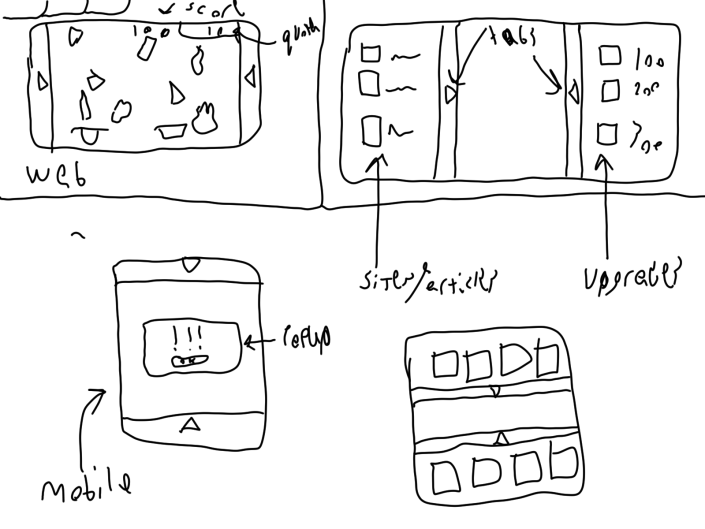 score
100 100
quota
web
tabs
100
200
300
sites/articles
upgrades
!!!
popup
mobile